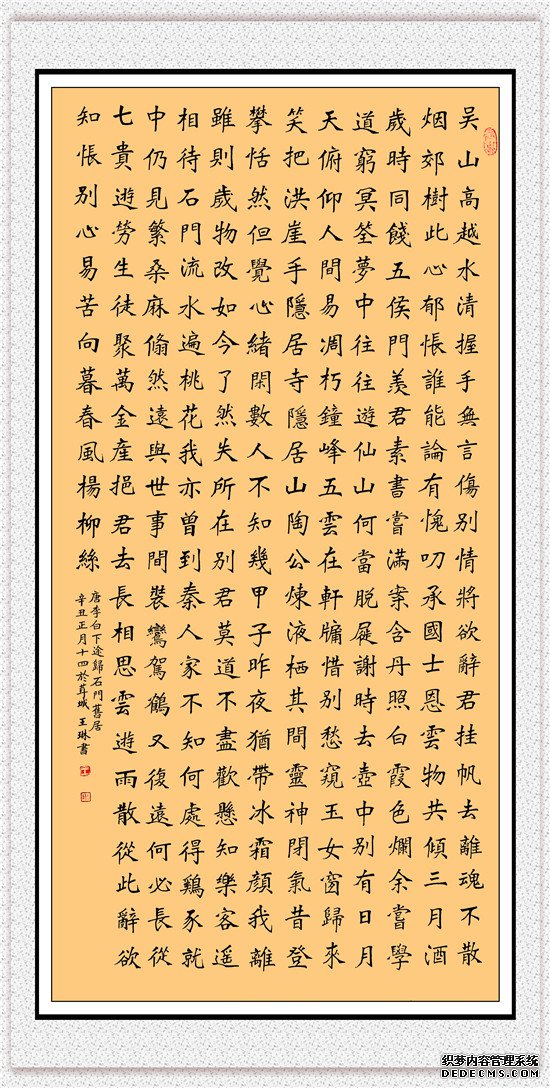 吴山高越水清握手無言傷別情將欲辭君挂帆去離魂不散
烟郊樹此心郁悵誰能論有愧叨承國士恩雲物共傾三月酒
歲時同餞五侯門羨君素書嘗滿案含丹照白霞色爛余嘗學
道窮冥筌夢中往往遊仙山何當脱屣謝時去壺中別有日月
天俯仰人間易凋朽鐘峰五雲在軒牖惜別愁窺玉女窗歸來
笑把洪崖手隱居寺隱居山陶公煉液栖其間靈神閉氣昔登
攀恬然但覺心緒閑數人不知幾甲子昨夜猶帶冰霜顔我離
雖則歲物改如今了然失所在別君莫道不盡歡懸知樂客遥
相待石門流水遍桃花我亦曾到秦人家不知何處得鷄豕就
中仍見繁桑麻翛然遠與世事間裝鸞駕鶴又復遠何必長從
七貴遊勞生徒聚萬金産挹君去長相思雲遊雨散從此辭欲
知悵別心易苦向暮春風楊柳絲
唐李白下途歸石門舊居
辛丑正月十四於茸城王琳書
织梦内容管理系统
DEDECMS.COM